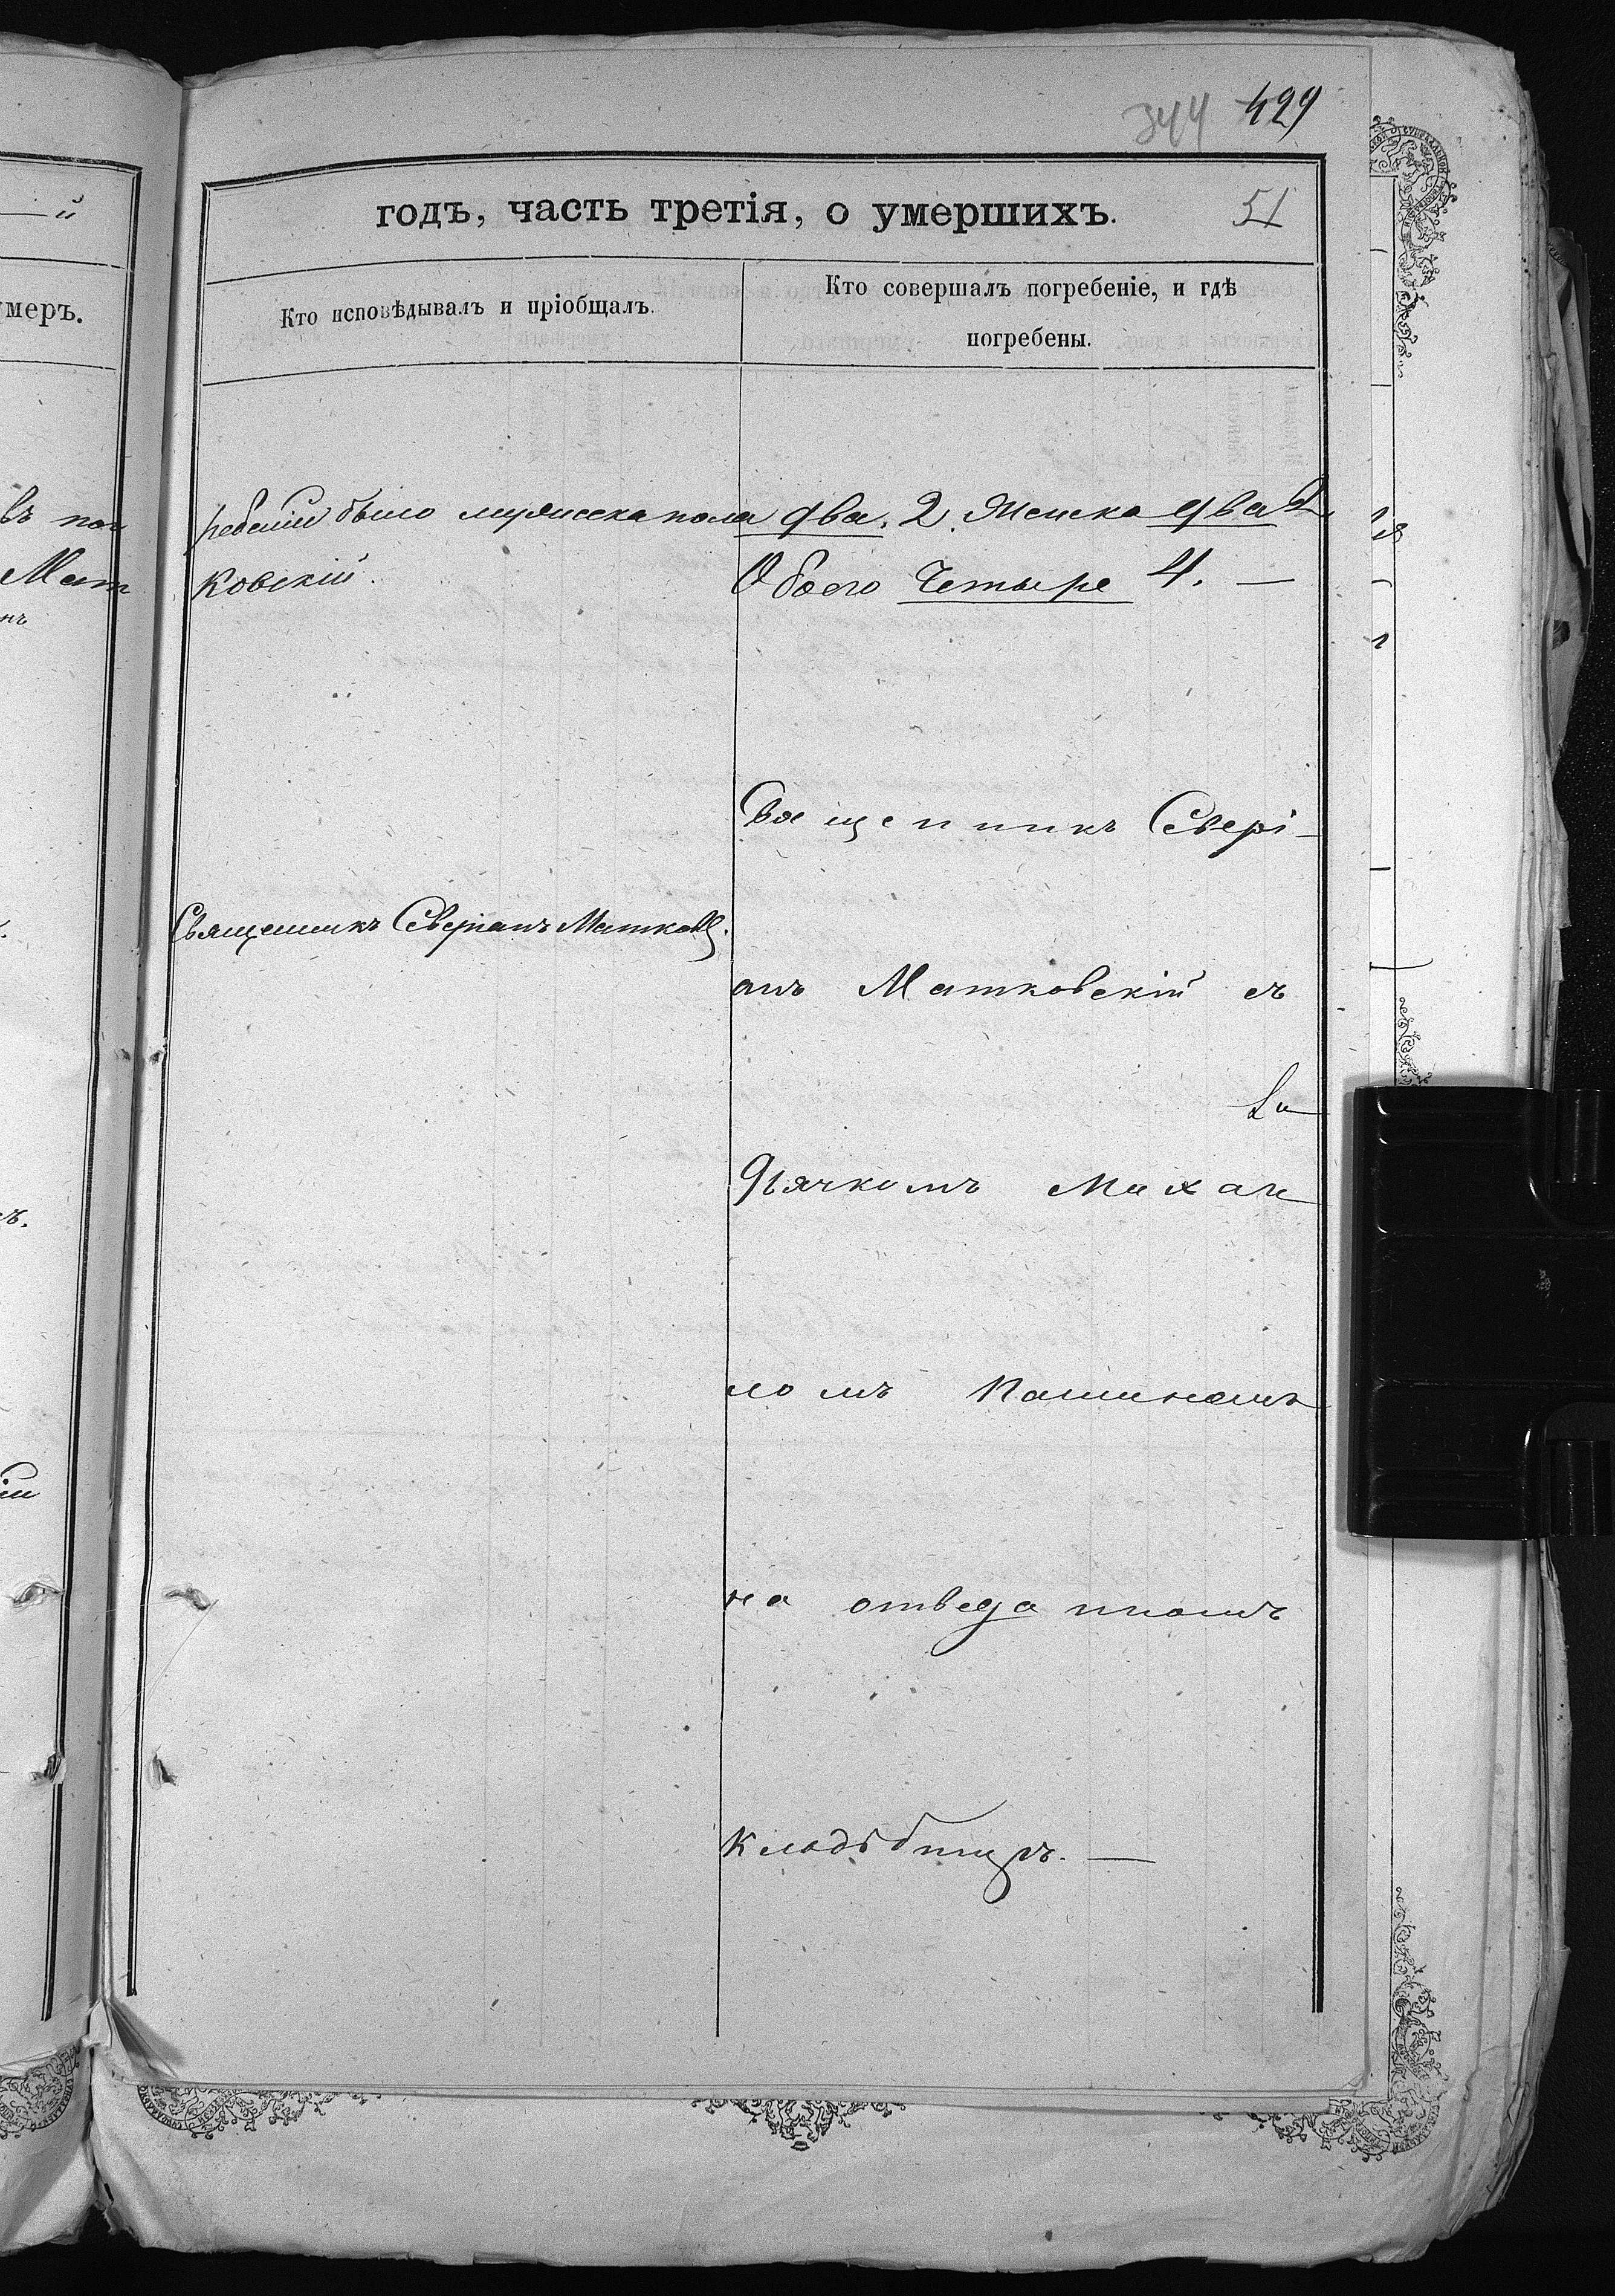 344 429
годъ, часть третія, о умершихъ. 51
умеръ.
Кто исповѣдывалъ и пріобщалъ.
Кто совершалъ погребеніе, и гдѣ
погребены.
въ пог
ребеніи было мужеска пола два. 2. Женска два 2.
Мат
ковскій.
Обоего Четыре 4. —
Священникъ Севері-
Священникъ Северіанъ Матков
анъ Матковскій съ
Дьячкомъ Михаи-
ломъ
на отведенномъ
Кладбищѣ. —